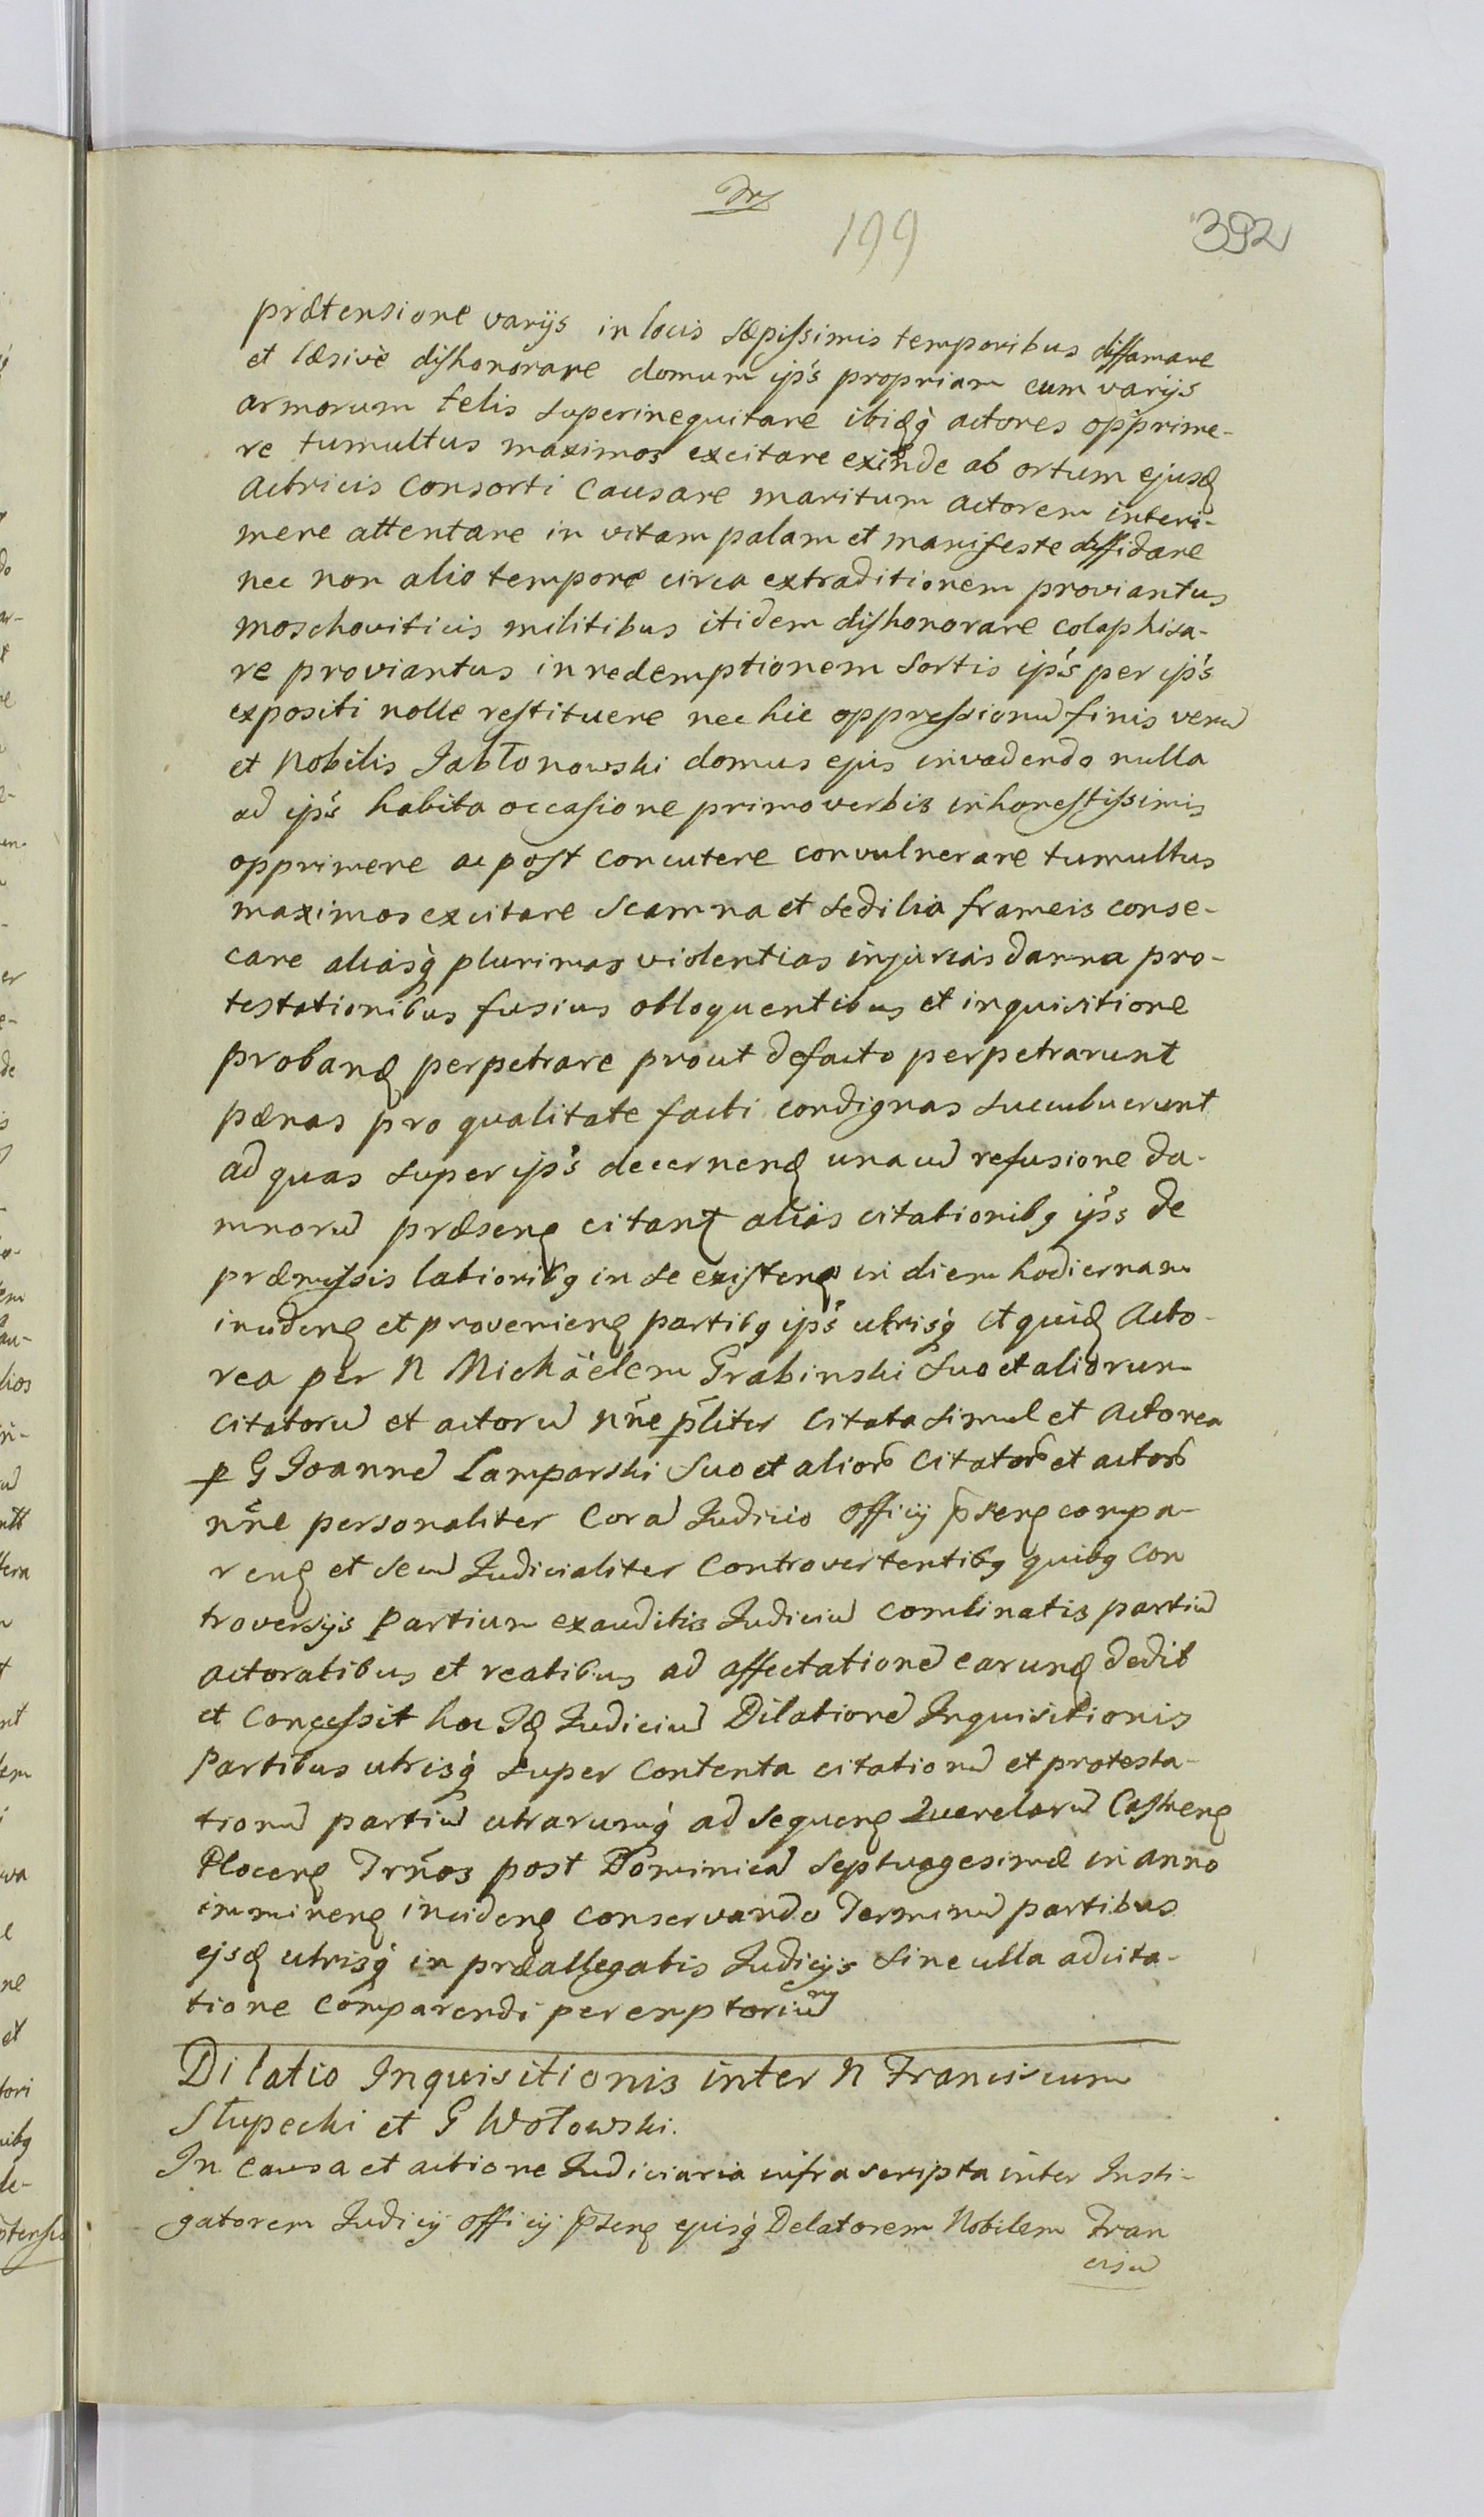 199
392
prætensione varijs in locis sæpissimis temporibus diffamare
et læsivè dishonorare domum ip̄s propriam cum varijs
armorum telis superinequitare ibidē q̀ actores opprime-
re tumultus maximos excitare exinde ab ortum ejusd
actricis consorti causare maritum actorem interi-
mere attentare in vitam palam et manifeste diffidare
nec non alio tempore circa extraditionem proviantus
moschoviticis militibus itidem dishonorare colaphisa-
re proviantus in redemptionem sortis ip̄s per ip̄s
expositi nolle restituere nec hic oppressionū finis verū
et Nobilis Jabłonowski domus ejus invadendo nulla
ad ip̄s habita occasione primo verbis inhonestissimis
opprimere ac post concutere convulnerare tumultus
maximos excitare scamna et sedilia frameis conse-
care aliasq̀ plurimas violentias injurias danna pro-
testationibus fusius obloquentibus et inquisitione
proband perpetrare prout defacto perpetrarunt
pænas pro qualitate facti condignas succubuerunt
ad quas super ip̄s decernend unacū refusione da-
mnorū præsen citant alias citationibq ip̄s de
præmissis latioribq in se existen in diem hodiernam
inciden et provenien partibq ip̄s utrisq̀ et quid Acto-
rea per N Michäelem Grabinski suo et aliorum
citatorū et actorū nn̄e p̄liter citata simul et actorea
p G Joannē Lamparski suo et alior citator et actor
nn̄e personaliter Corā Judicio officij p̄sen compa-
ren et secū Judicialiter Controvertentibq quibq Con
troversijs Partium exauditis Judiciū combinatis partiū
actoratibus et reatibus ad affectationē earund dedit
et Concessit hoc Id Judiciū Dilationē Inquisitionis
Partibus utrisq̀ super Contenta citationū et protesta-
tionū partiū utrarumq̀ ad sequen Querelarū Castren
Plocen Trn̄os post Dominicā Septuagesimæ in anno
imminen inciden conservando Terminū partibus
ejsd utrisq̀ in præallegatis Judicijs sine ulla adcita-
tione Comparendi peremptoriū
Dilatio Inquisitionis inter N Franciscum
Słupecki et G Wołowski.
In causa et actione Judiciaria infrascripta inter Insti-
gatorem Judicij officij p̄sen ejusq̀ Delatorem Nobilem Fran
ciscū